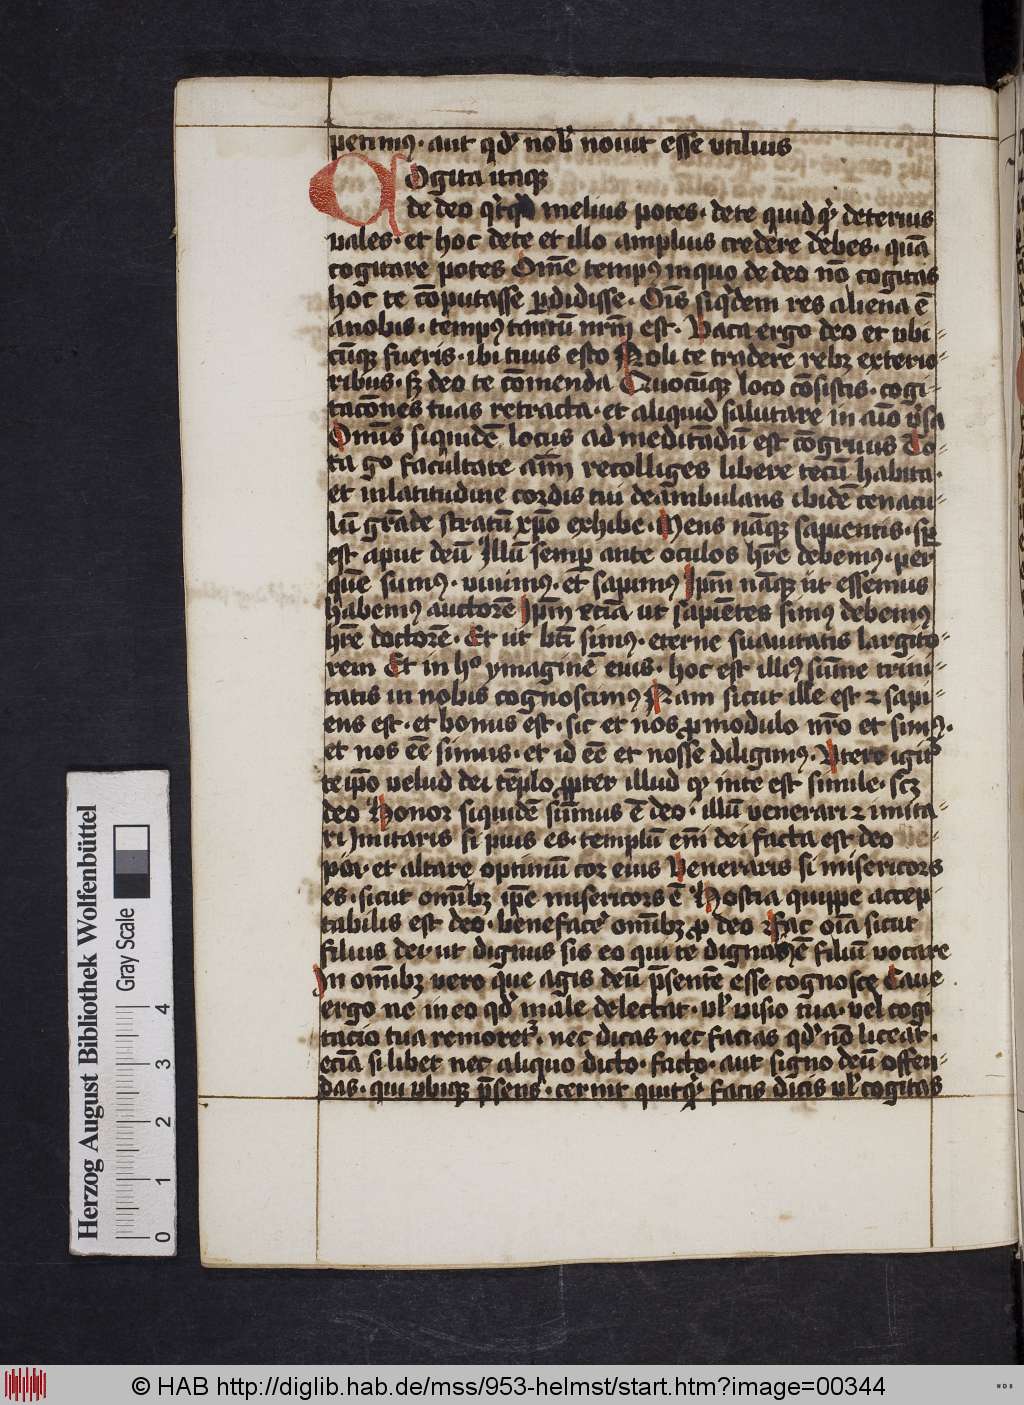 petim⁹· aut qd' nob' nouit esse vtilius
Cogita itaq3
de deo q'tq'd melius potes· dete quid q' deterius
vales· et hoc dete et illo amplius credere debes· quā
cogitare potes Om̄e temp⁹ inquo de deo nō cogitas
hoc te cōputasse p̱didisse· Oīs siq'dem res aliena ē
anobis· temp⁹ tantū nr̄m est· Vaca ergo deo et vbi
cūq3 fueris· ibi tuus esto Noli te tradere reb3 exterio⸗
ribus· s3 deo te cōmenda Quocūq3 loco cōsistis· cogi⸗
tacōnes tuas retracta· et aliquid salutare in aīo v'sa
Omīs siquidē locus ad meditādū est cōgruus To⸗
ta go facultate aīm recolliges libere tecū habita·
et inlatitudine cordis tui deābulans ibidē cenacu⸗
lū grāde stratū xp̄o exhibe· Mens nāq3 sapientis· sp̱
est aput deū Illū semp̱ ante oculos hr̄e debemus· per
quē sum⁹· viuim⁹· et sapim⁹ Ip̄m nāq3 ut essemus
habem⁹ auctorē Ip̄m eciā ut sapiētes sim⁹ debem⁹
hr̄e doctorē· Et ut bt̄i sim⁹· eterne suauitatis largito⸗
rem Et in h° ymaginē eius· hoc est illi⁹ sūme trini⸗
tatis in nobis cognoscim⁹ Nam sicut ille est ⁊ sapi⸗
ens est· et bonus est· sic et nos ꝓmodulo nr̄o et sim⁹·
et nos eē simus· et id eē et nosse diligim⁹· Vtere igit'
te ip̄o velud dei tēplo ꝓpter illud q' inte est simile· sc3
deo Honor siquidē sūmus ē deo· illū venerari ⁊ imita⸗
ri Imitaris si pius es· templū em̄ dei facta est deo
pia· et altare optimū cor eius Veneraris si misericors
es· sicut omīb3 ip̄e misericors ē Hostia quippe accep⸗
tabilis est deo· benefacere omīb3 ꝓ deo Fac oīa sicut
filius dei· ut dignus sis eo qui te dignat' ē filiū vocare
In omīb3 vero que agis deū p̄sentē esse cognosce Caue
ergo ne in eo qd' male delectat· vl' visio tua· vel cogi
tacio tua remoret'· nec dicas nec facias qd' nō liceat·
eciā si libet nec aliquo dicto· facto· aut signo deū offen⸗
das· qui vbiq3 p̄sens· cernit quitq' facis dicis vl' cogitas
Herzog August Bibliothek Wolfenbüttel
Gray Scale
0 1 2 3 4
© HAB http://diglib.hab.de/mss/953-helmst/start.htm?image=00344